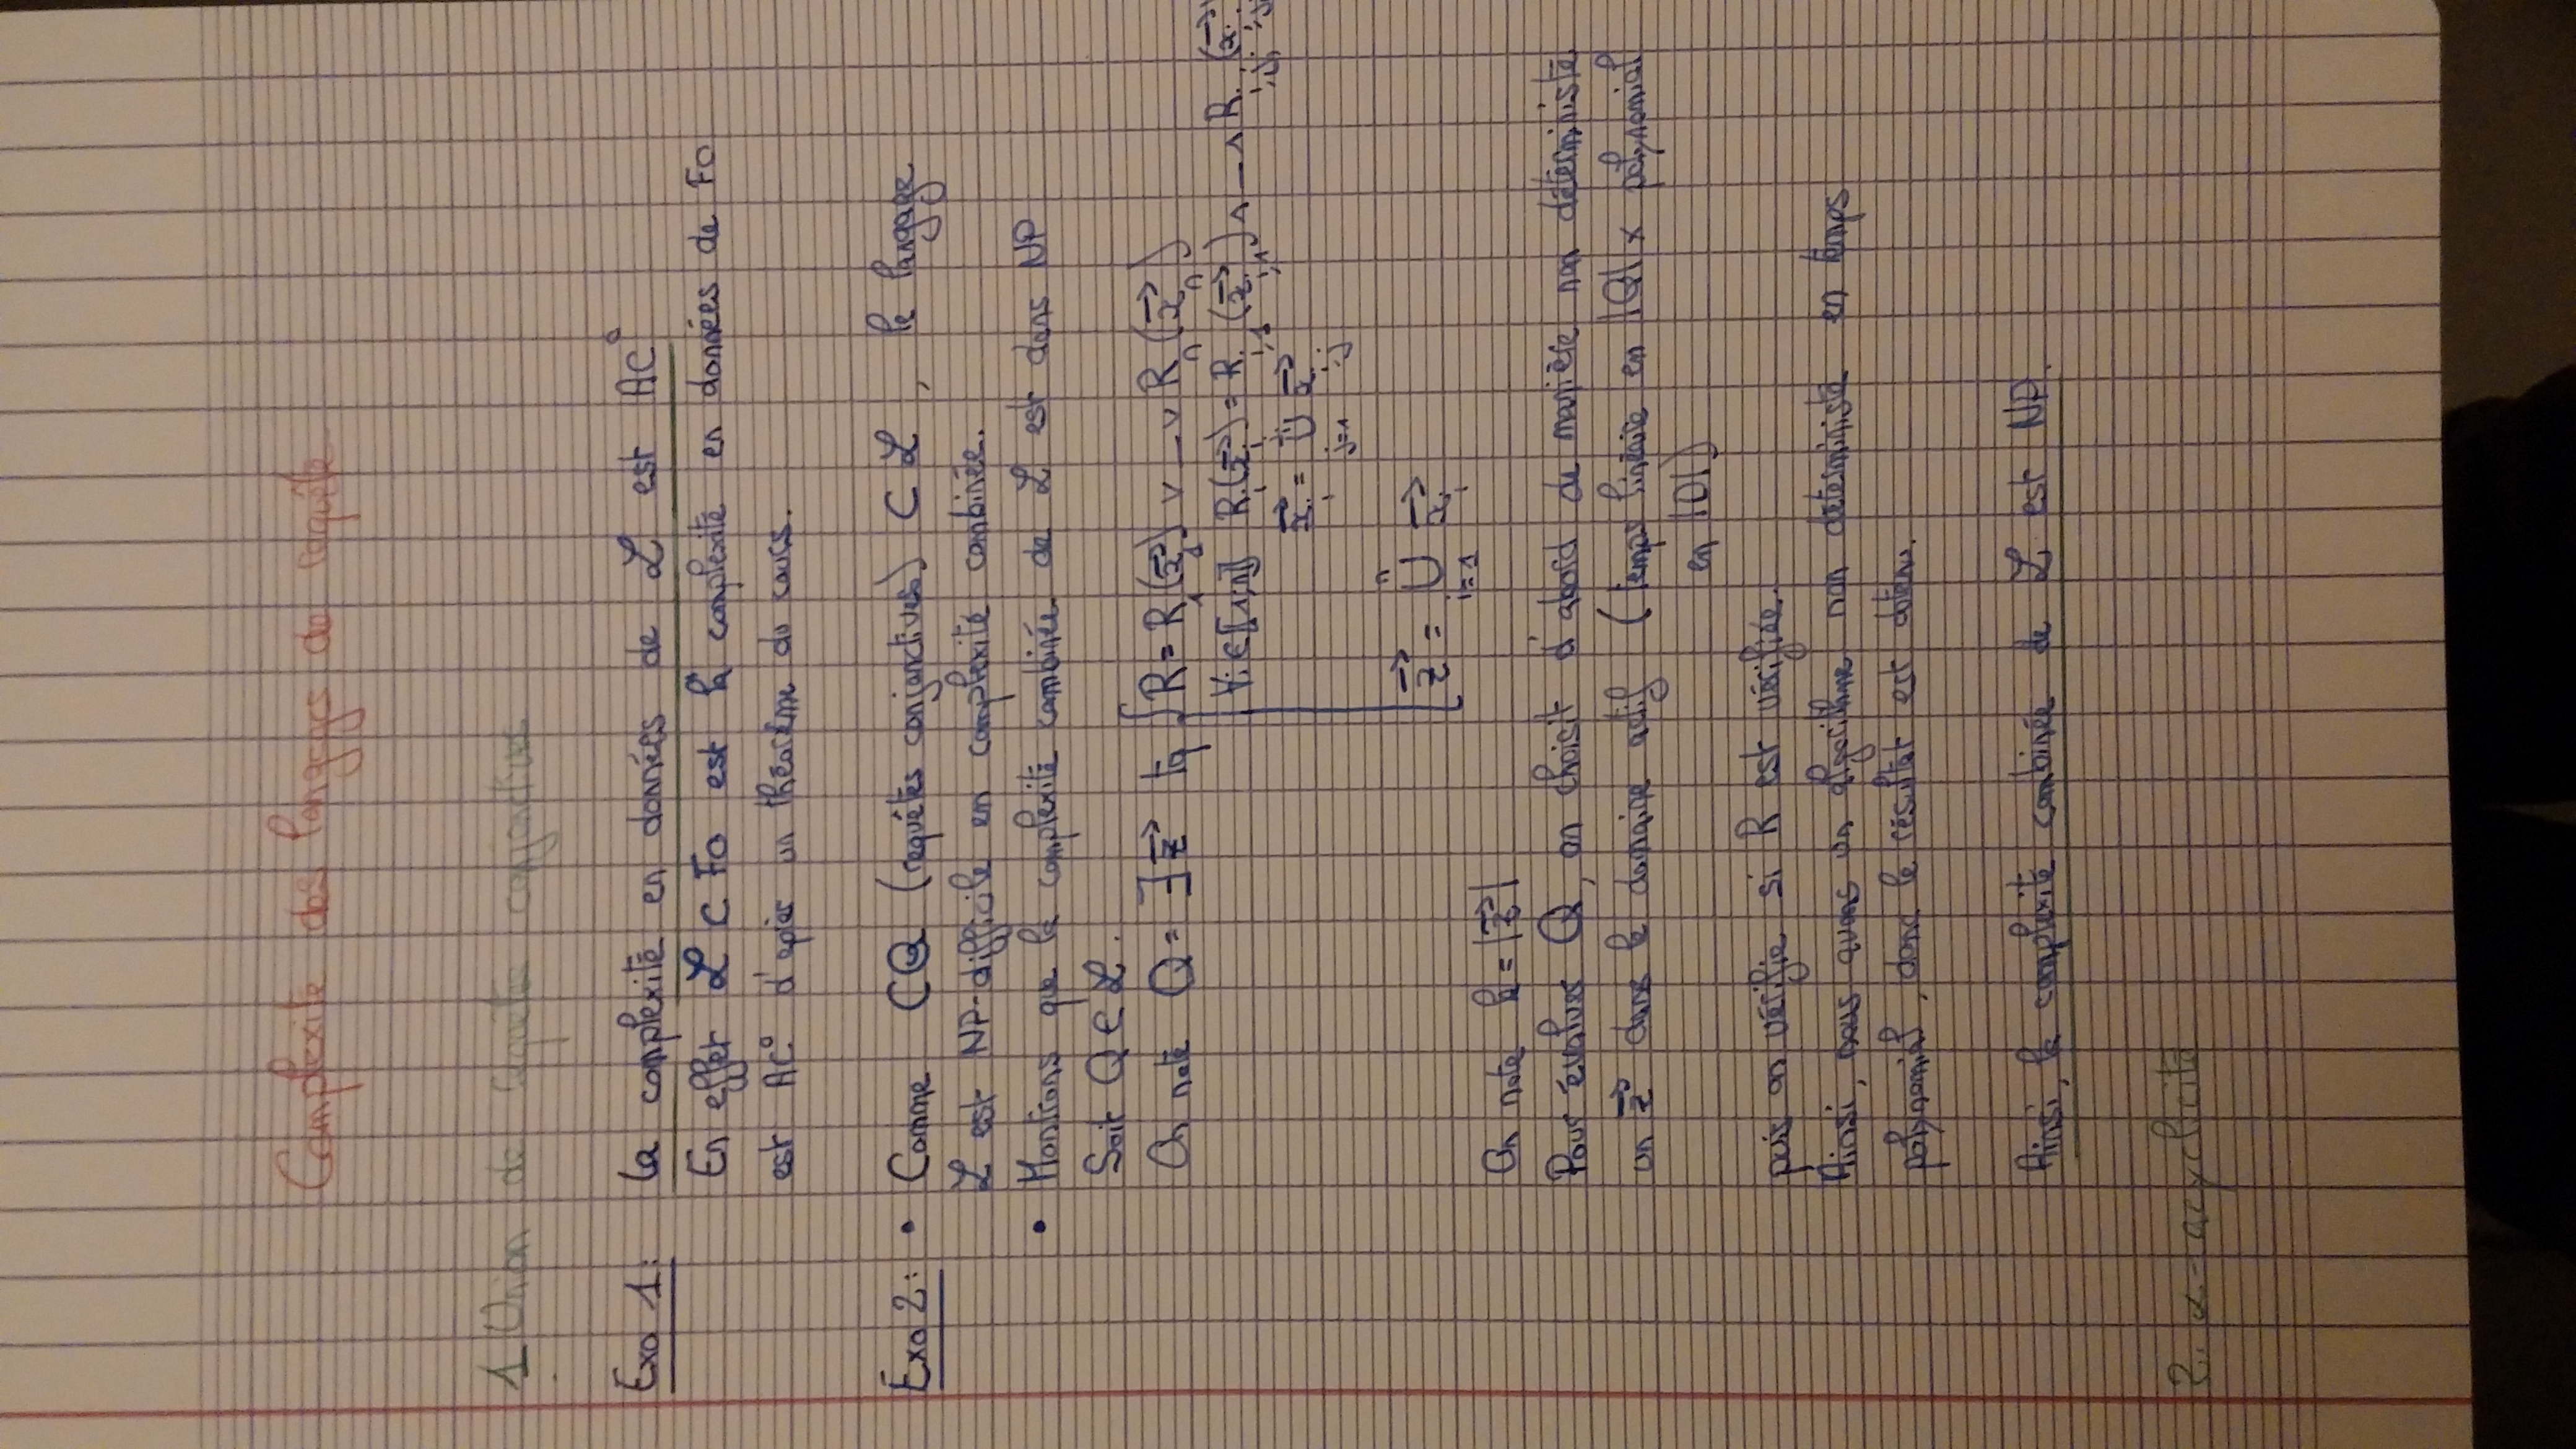 Complexité des langages de requête
1 Union de requêtes conjonctives
Exo 1: La complexité en données de ℒ est AC⁰
En effet ℒ ⊂ FO est la complexité en données de FO
est AC⁰ d'après un théorème du cours.
Exo 2: • Comme CQ (requêtes conjonctives) ⊂ ℒ, le langage
ℒ est NP-difficile en complexité combinée.
• Montrons que la complexité combinée de ℒ est dans NP
Soit Q ∈ ℒ.
On note Q = ∃ z⃗ tq { R = R₁(x⃗₁) ∨ _ ∨ Rₙ(x⃗ₙ)
∀i ∈ ⟦1,n⟧ Rᵢ(x⃗ᵢ) = Rᵢ,₁(x⃗ᵢ,₁) ∧ _ ∧ Rᵢ,jᵢ(x⃗ᵢ,jᵢ)
x⃗ᵢ = ⋃_{j=1}^{jᵢ} x⃗ᵢ,j
z⃗ = ⋃_{i=1}^{n} x⃗ᵢ
On note k = |z⃗|
Pour évaluer Q, on choisit d'abord de manière non déterministe
un z⃗ dans le domaine actif (temps linéaire en |Q| × polynomial
en |D|)
puis on vérifie si R est vérifiée.
Ainsi, nous avons un algorithme non déterministe en temps
polynomial, donc le résultat est obtenu.
Ainsi, la complexité combinée de ℒ est NP.
2. α-acyclicité